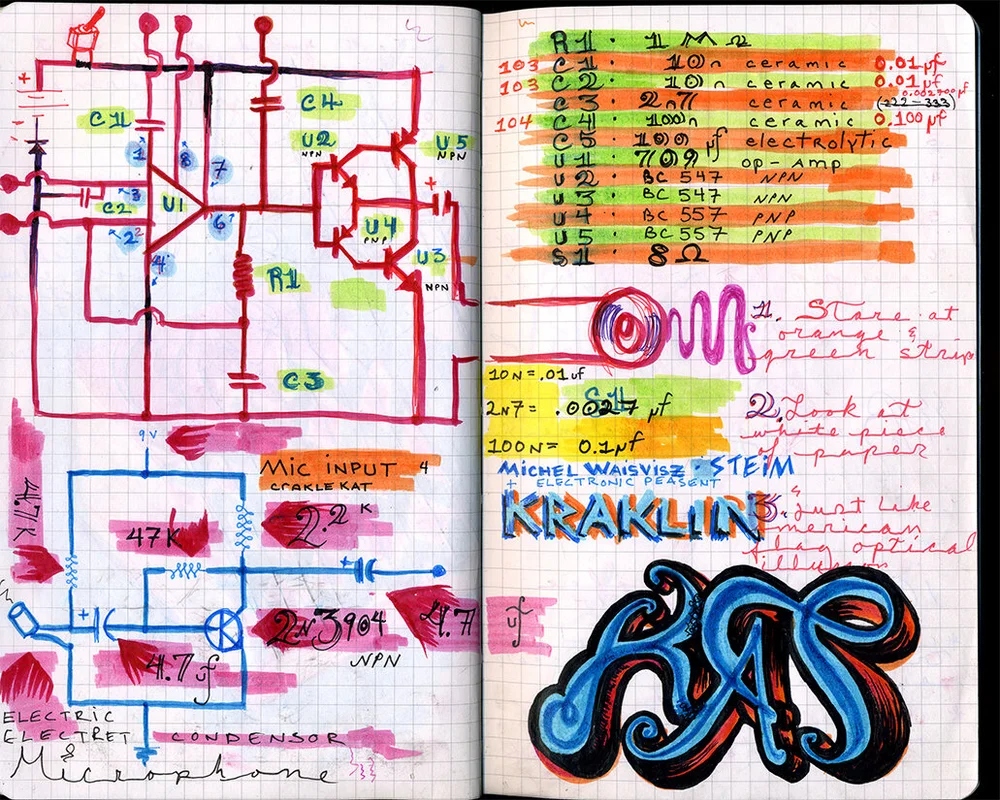 +
C1
C4
U2
NPN
U5
NPN
1
8
7
3
C2
U1
+
2
6?
4
U4
PNP
U3
NPN
R1
C3
9V
MIC INPUT 4
CRAKLE KAT
47K
47K
2.2 K
+
+
2N3904
NPN
4.7
4.7 uf
ELECTRIC
ELECTRET CONDENSOR
&
Microphone
R1 · 1 M Ω
103 C1 · 10n ceramic 0.01 µf
103 C2 · 10n ceramic 0.01 µf
0.002700 µf
C3 · 2n7 ceramic (222-333)
104 C4 · 100n ceramic 0.100 µf
C5 · 100 µf electrolytic
U1 · 709 op-AMP
U2 · BC 547 NPN
U3 · BC 547 NPN
U4 · BC 557 PNP
U5 · BC 557 PNP
S1 · 8 Ω
1. Stare at
orange &
green strip
10N = .01uf
S1
2N7 = .0027 µf
100N = 0.1µf
2. Look at
white piece
of paper
MICHEL WAISVISZ · STEIM
+ ELECTRONIC PEASENT
KRAKLIN
&
3. Just Like
merican
flag optical
illusion
uf
KAT